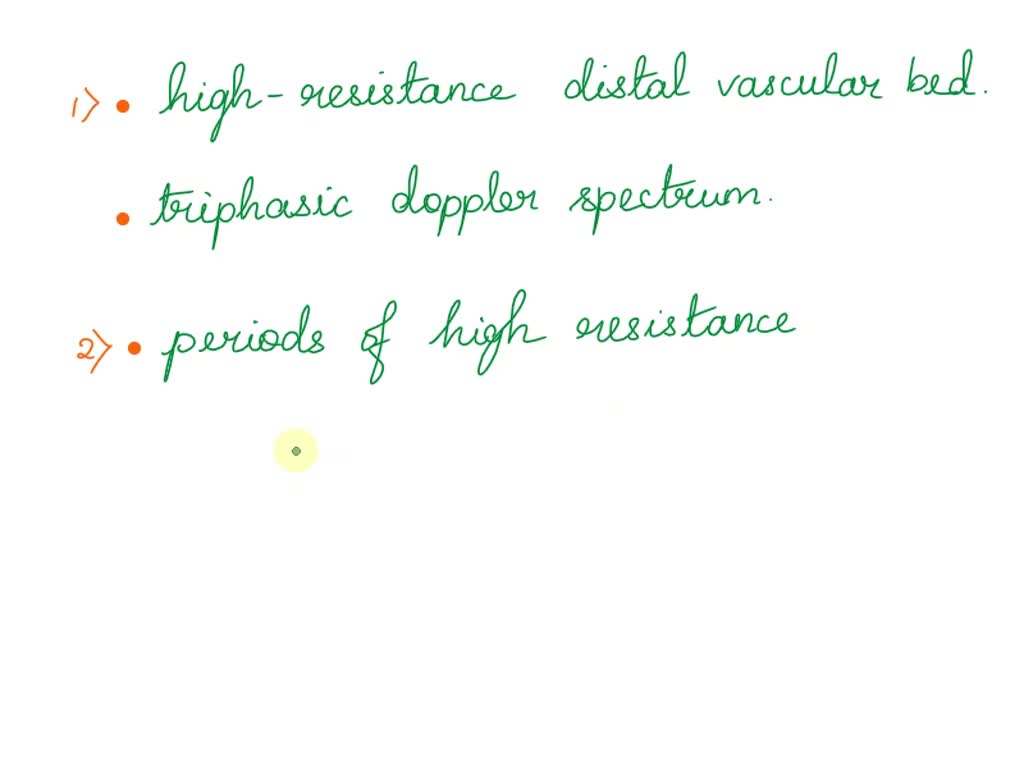 1) • high-resistance distal vascular bed.
• triphasic doppler spectrum.
2) • periods of high resistance